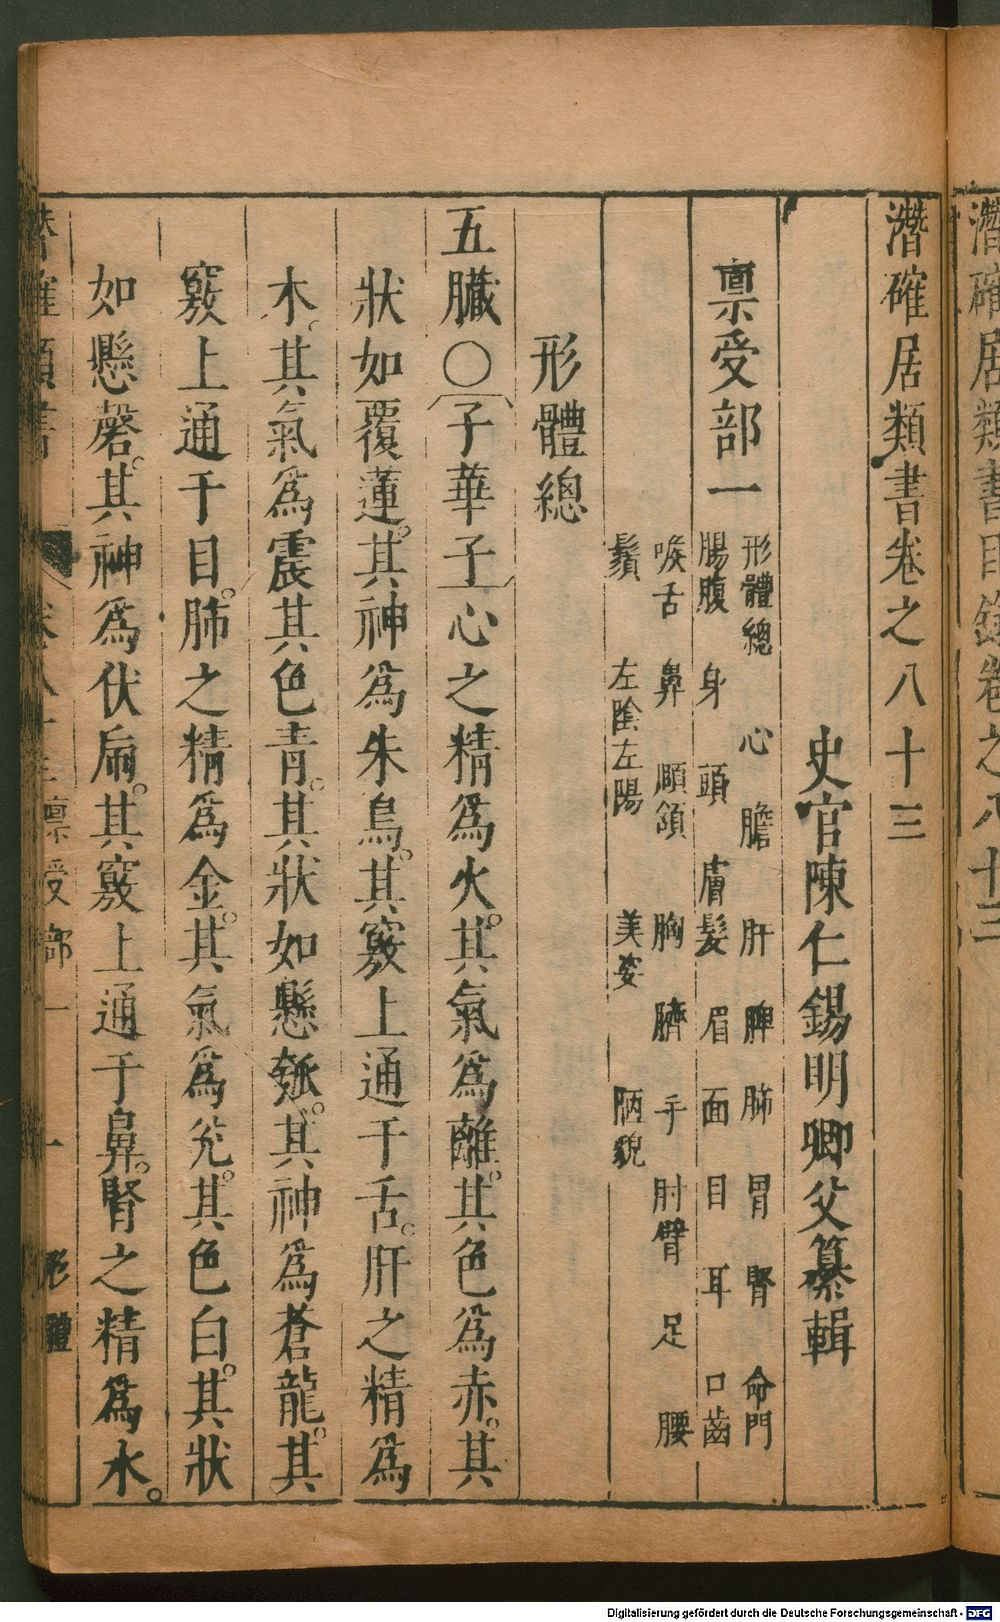 潛確居類書目錄卷之八十三
潛確居類書卷之八十三
史官陳仁錫明卿父纂輯
稟受部一
形體總 心 膽 肝 脾 肺 胃 腎 命門
腸腹 身 頭 膚髮 眉 面 目 耳 口齒
喉舌 鼻 頤頷 胸 臍 手 肘臂 足 腰
鬚 左陰左陽 美姿 陋貌
形體總
五臟〇子華子心之精爲火。其氣爲離。其色爲赤。其
狀如覆蓮。其神爲朱鳥。其竅上通于舌。肝之精爲
木。其氣爲震。其色青。其狀如懸瓠。其神爲蒼龍。其
竅上通于目。肺之精爲金。其氣爲兌。其色白。其狀
如懸磬。其神爲伏虎。其竅上通于鼻。腎之精爲水。
潛確類書 卷八十三 稟受部一 一 形體
Digitalisierung gefördert durch die Deutsche Forschungsgemeinschaft - DFG